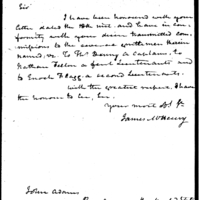 Sir
I have been honoured with your
letter dated the 18th inst. and have in con-
formity with your desire transmitted com-
missions to the several gentlemen therein
named, viz. to Danny a Captain, to
Nathan Fellow a first Lieutenant and
to Enoch Flagg a second Lieutenant.
With the greatest respect, I have
the honour to be, Sir,
Your most Obt. St.
James McHenry
John Adams